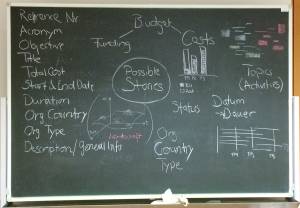 Reference Nr
Acronym
Objective
Title
Total Cost
Start & End Date
Duration
Org Country
Org Type
Description/general Info
Budget
Funding
Costs
Possible
Stories
Status
Datum
Dauer
Topics
(Activities)
Org
Country
Type